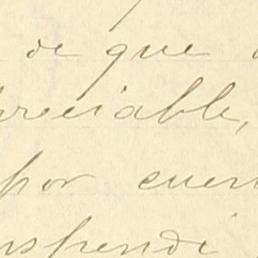 de que
preciable,
por cuen
uspendi